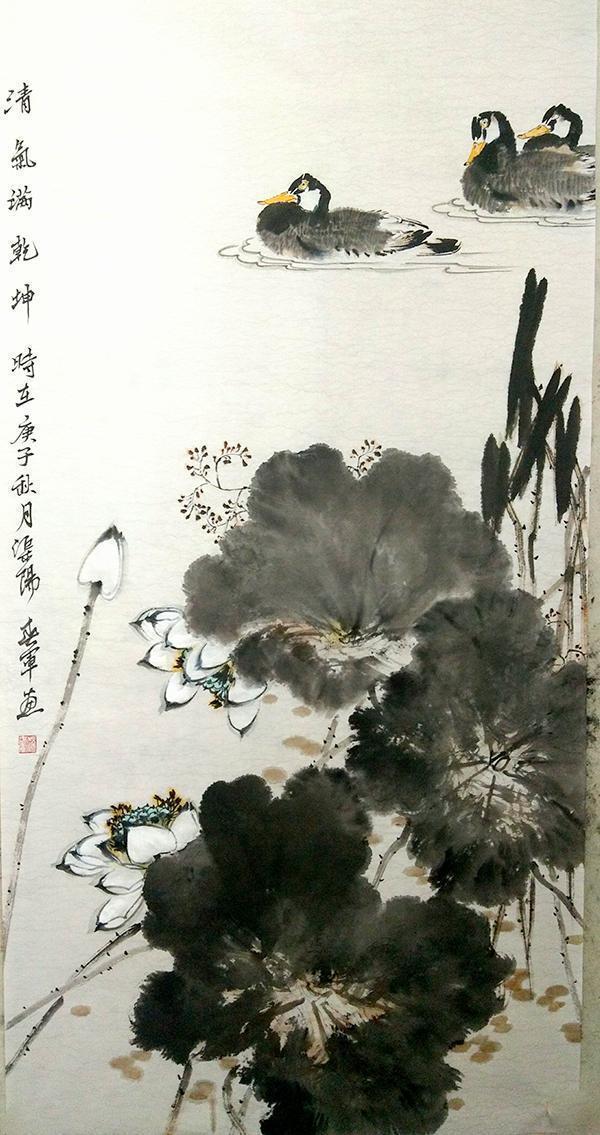 清氣满乾坤 時在庚子秋月渠陽 春軍画